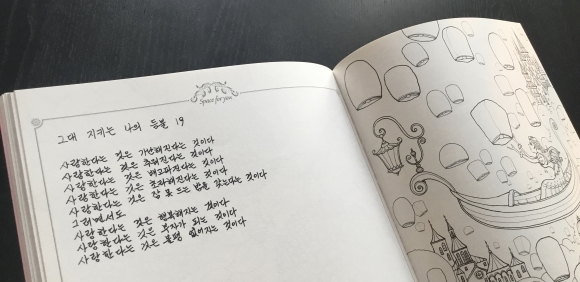 Space for you
그대 지키는 나의 등불 19
사랑한다는 것은 가난해진다는 것이다
사랑한다는 것은 추워진다는 것이다
사랑한다는 것은 배고파진다는 것이다
사랑한다는 것은 초라해진다는 것이다
사랑한다는 것은 잠 못 드는 밤을 갖는다는 것이다
그러면서도
사랑한다는 것은 행복해지는 것이다
사랑한다는 것은 부자가 되는 것이다
사랑한다는 것은 불평 없어지는 것이다